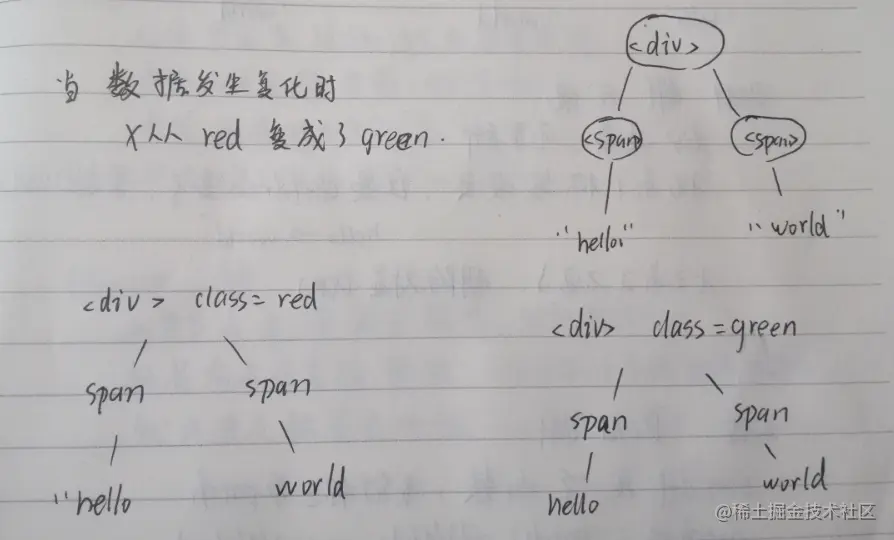 <div>
当数据发生变化时
X从 red 变成了 green.
<span> <span>
"hello" "world"
<div> class = red
span span
"hello world
<div> class = green
span span
hello world
@稀土掘金技术社区